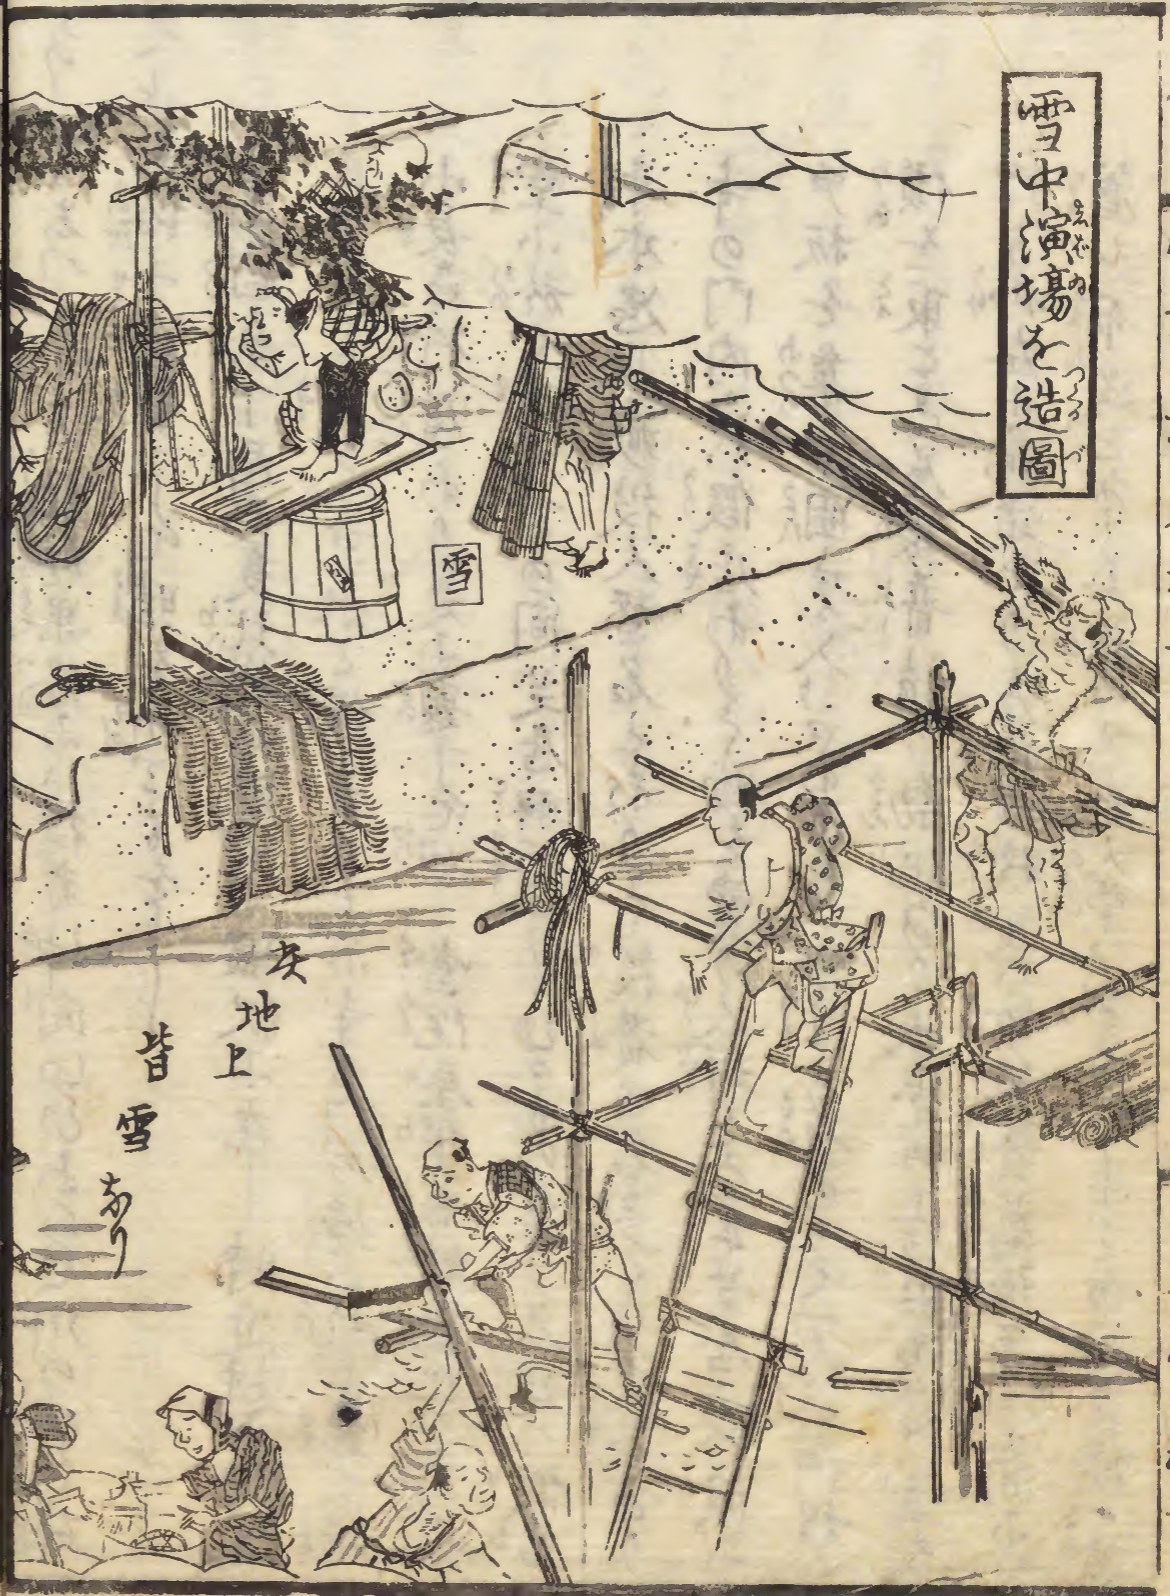 雪中演場を造圖
雪
地上
皆
雪
なり